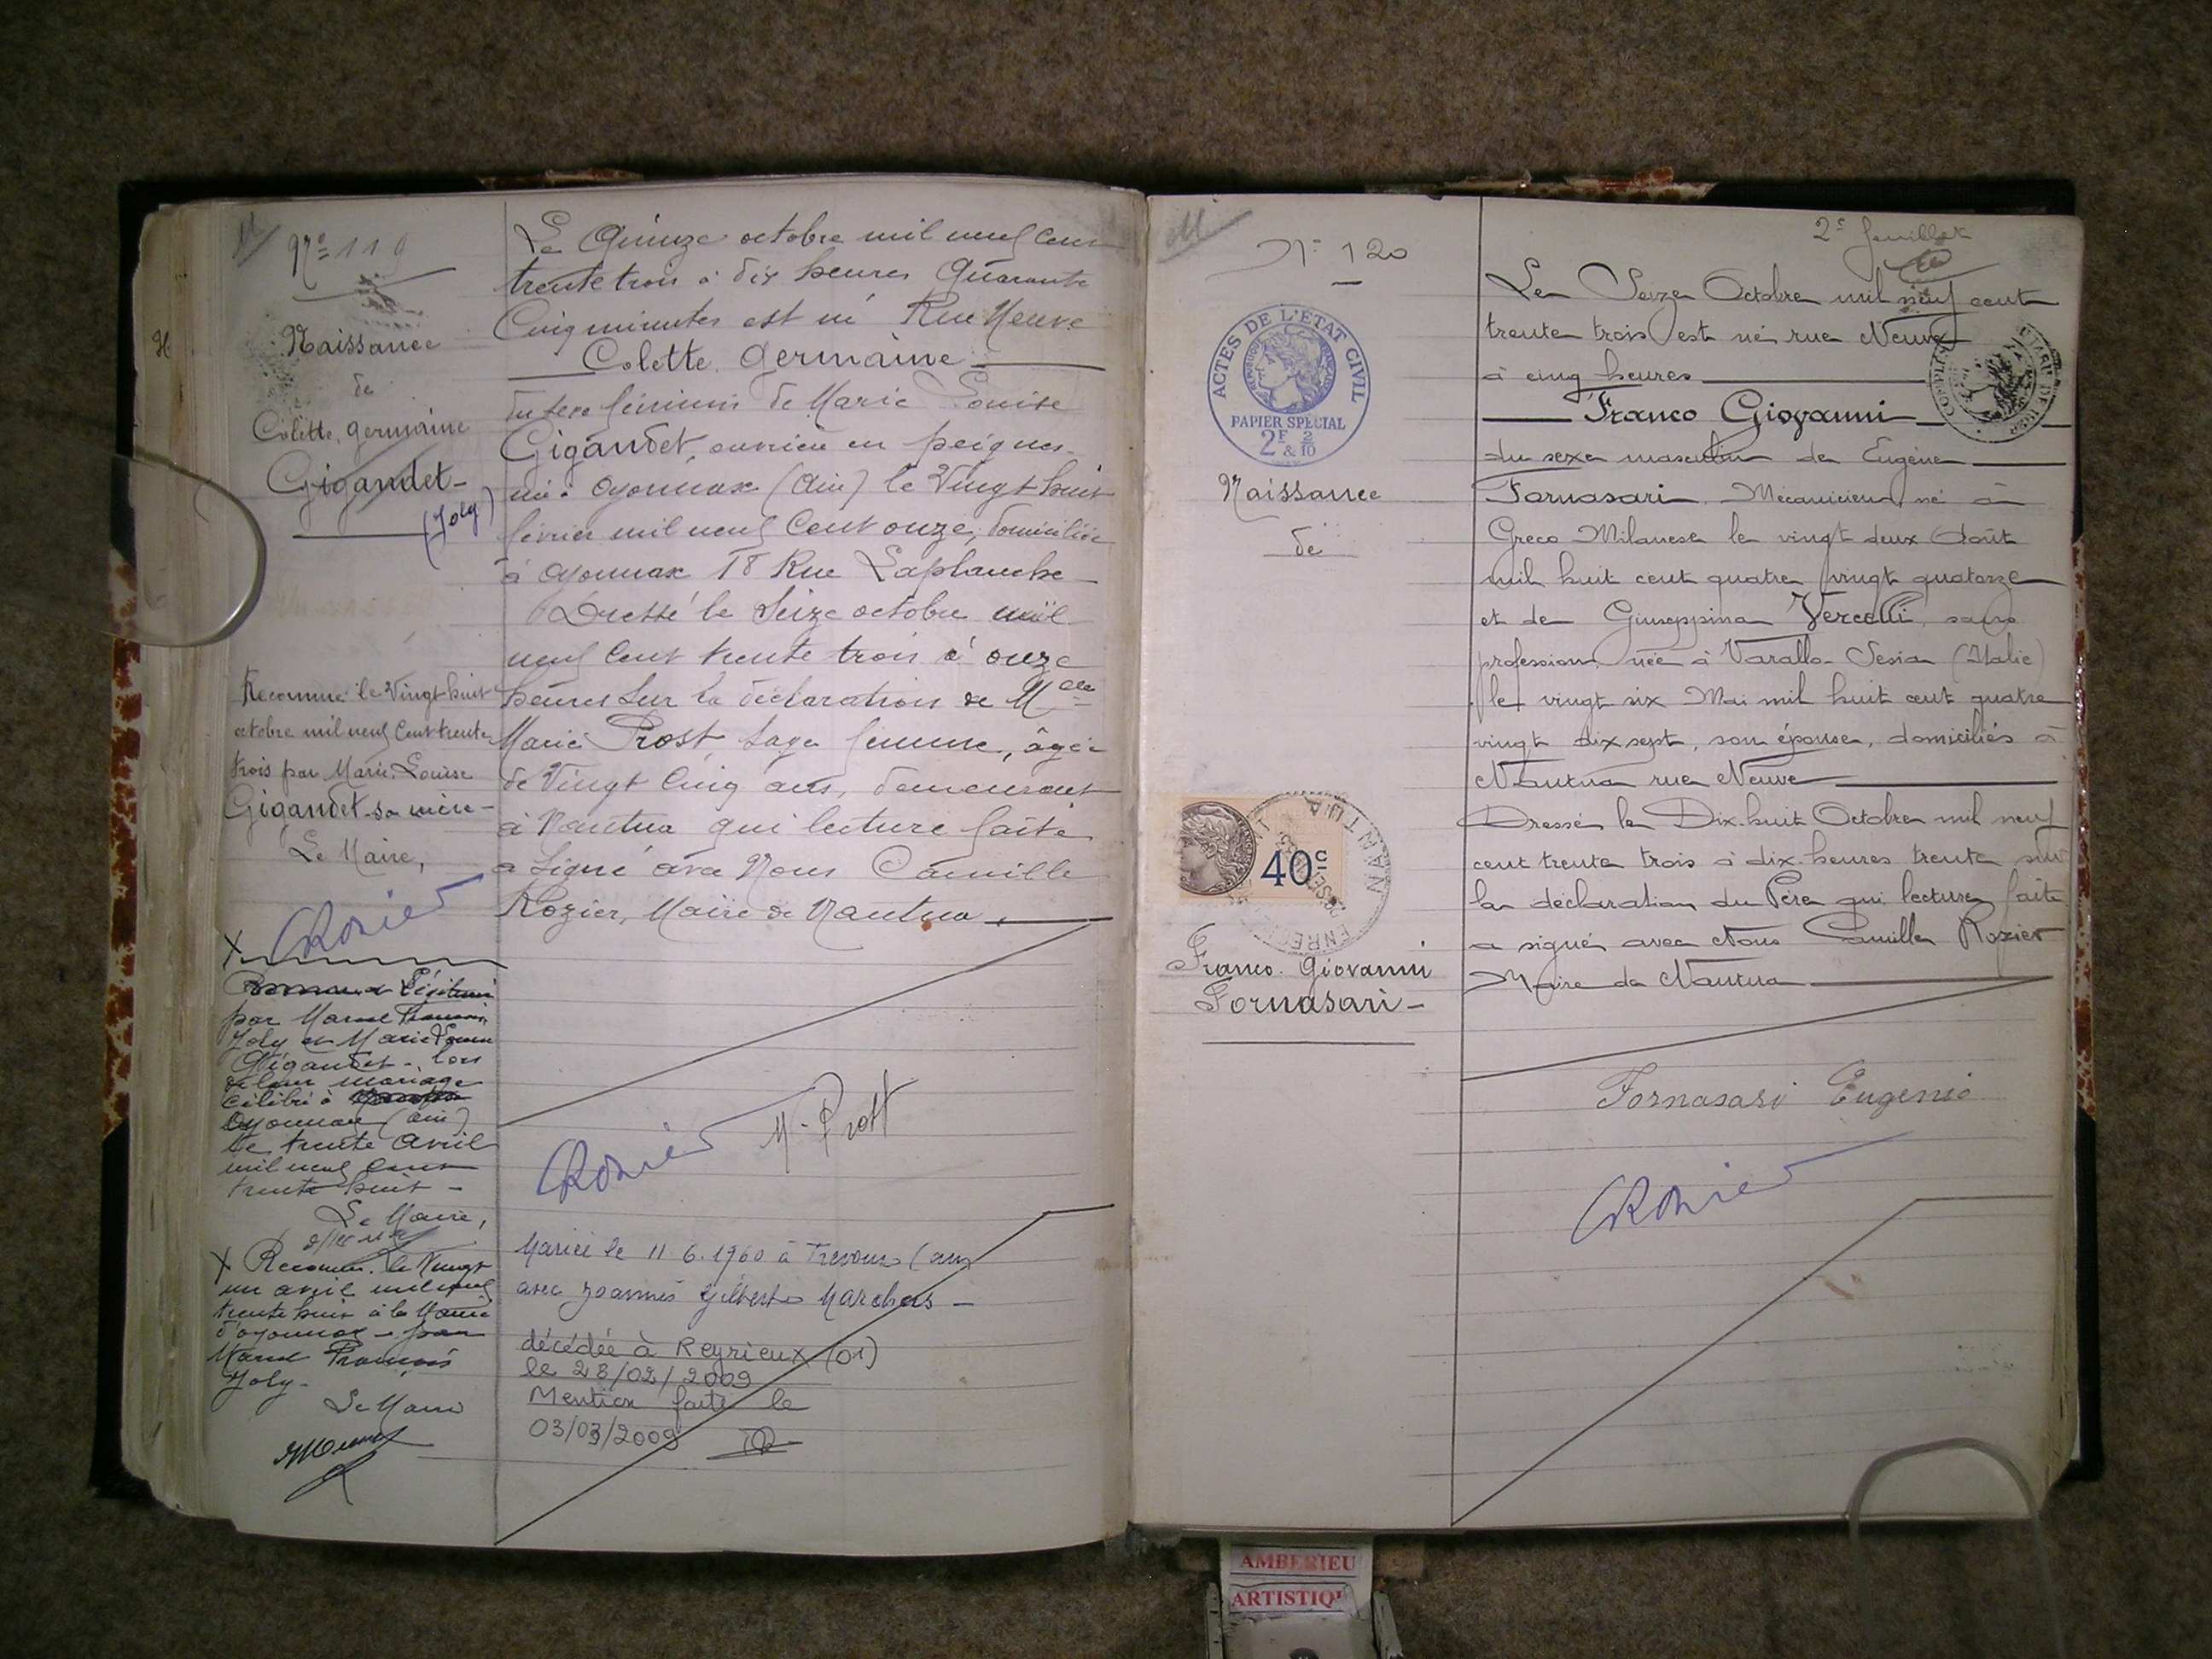 Nº 119
Naissance
de
Colette, germaine
Gigandet
(Joly)
Reconnue le Vingt huit
octobre mil neuf Cent trente
trois par Marie-Louise
Gigandet sa mère
Le Maire,
CRozier
Légitimée
par Marcel François
Joly et Marie Louise
Gigandet lors
de leur mariage
célébré à
Oyonnax (ain)
le trente avril
mil neuf cent
trente huit -
Le Maire,
X Reconnue le Vingt
un avril mil neuf
trente huit à la Mairie
d'oyonnax - par
Marcel François
Joly -
Le Maire
Le Quinze octobre mil neuf Cent
trente trois à dix heures Quarante
Cinq minutes est né Rue Neuve
Colette. Germaine
du sexe féminin de Marie Louise
Gigandet, ouvrière en peignes
née à Oyonnax (Ain) le Vingt huit
février mil neuf Cent onze, domiciliée
à Oyonnax 18 Rue Laplanche
Dressé le Seize octobre mil
neuf Cent trente trois à onze
heures sur la déclaration de Melle
Marie Prost, sage femme, âgée
de Vingt Cinq ans, demeurant
à Nantua qui lecture faite
a signé avec Nous Camille
Rozier, Maire de Nantua.
CRozier M. Prost
Mariée le 11.6.1960 à Trevoux (ain)
avec Joannès Gilbert
décédée à Reyrieux (01)
le 28/02/2009
Mention faite le
03/03/2009
Nº 120
ACTES DE L'ETAT CIVIL
PAPIER SPECIAL
2F & 2/10
Naissance
de
40c
NANTUA
Franco. Giovanni
Fornasari -
2e feuillet
Le Seize Octobre mil neuf cent
trente trois est né rue Neuve
à cinq heures
Franco Giovanni
du sexe masculin de Eugène
Fornasari, Mécanicien, né à
Greco Milanese le vingt deux Août
mil huit cent quatre vingt quatorze
et de Giuseppina Vercelli, sans
profession, née à Varallo-Sesia (Italie)
le vingt six Mai mil huit cent quatre
vingt dix sept, son épouse, domiciliés à
Nantua rue Neuve
Dressé le Dix-huit Octobre mil neuf
cent trente trois à dix-heures trente sur
la déclaration du Père qui lecture faite
a signé avec Nous Camille Rozier
Maire de Nantua
Fornasari Eugenio
CRozier
AMBERIEU
ARTISTIQ